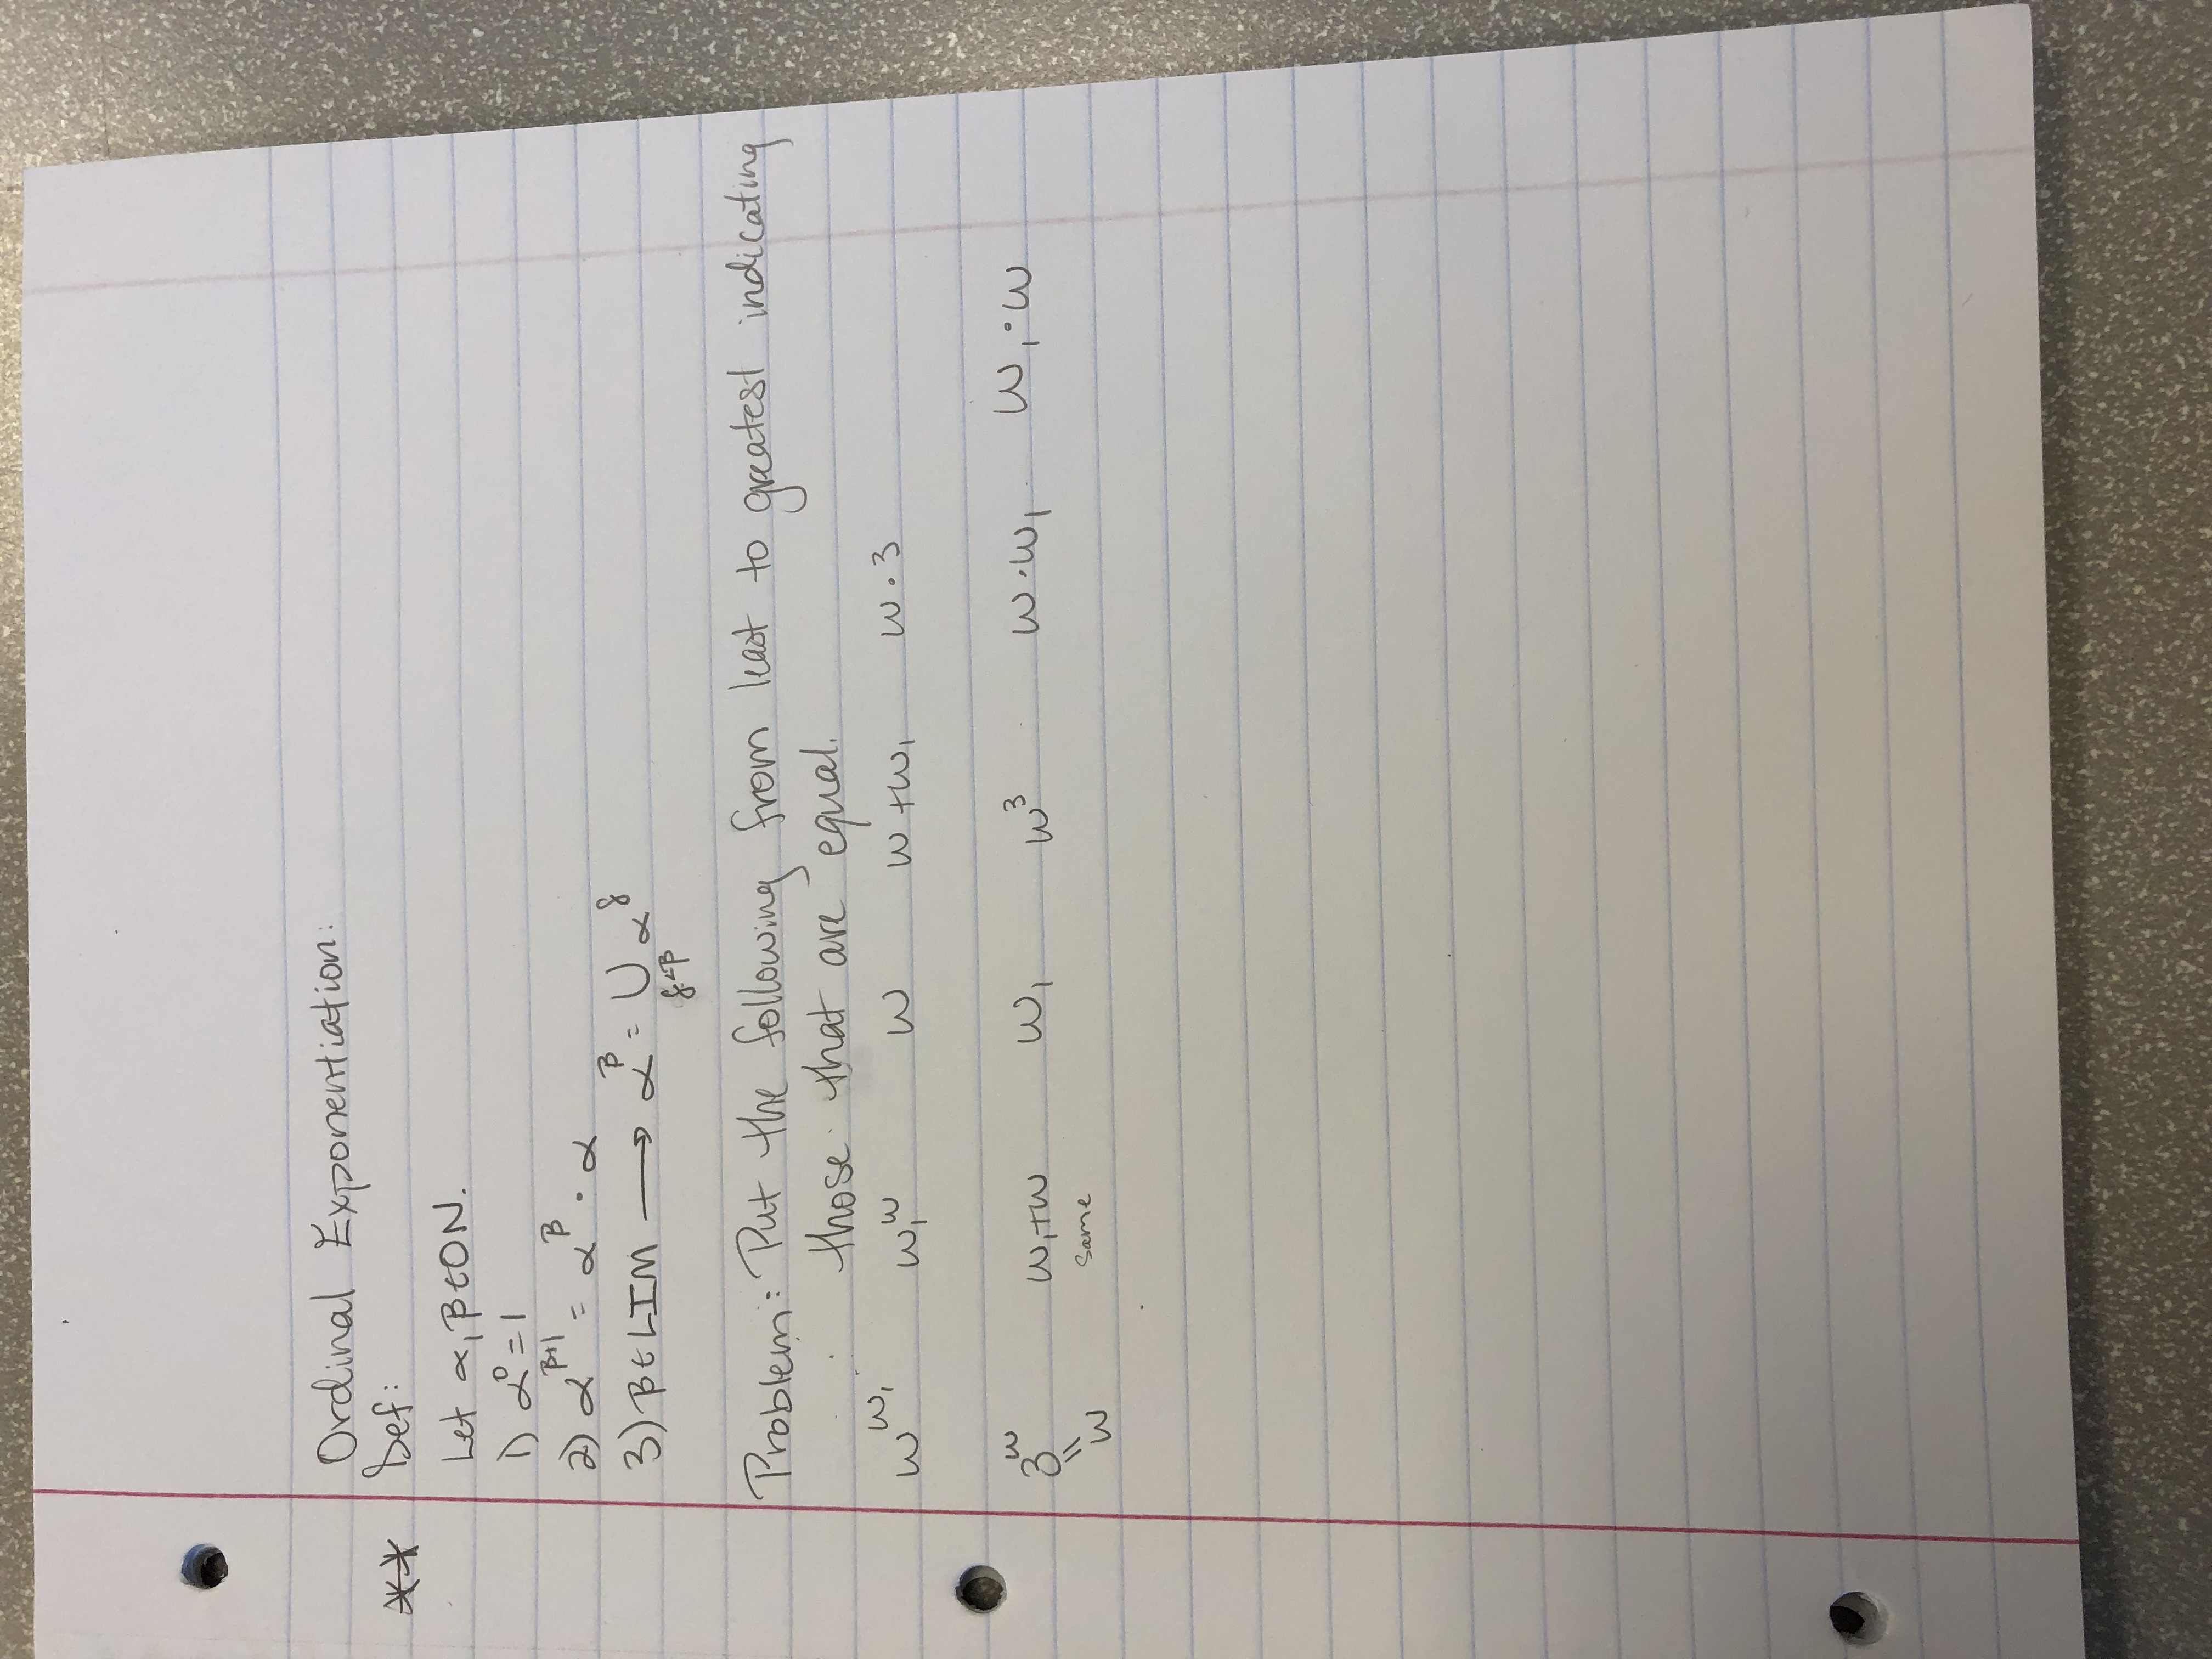 Ordinal Exponentiation:
** Def:
Let α, β ∈ ON.
1) α⁰ = 1
2) α^{β+1} = α^β · α
3) β ∈ LIM ⟶ α^β = ⋃_{δ<β} α^δ
Problem: Put the following from least to greatest indicating
those that are equal.
ω^{ω₁} ω₁^ω ω ω + ω₁ ω · 3
3^ω ω₁+ω ω₁ ω³ ω · ω₁ ω₁ · ω
= same
ω